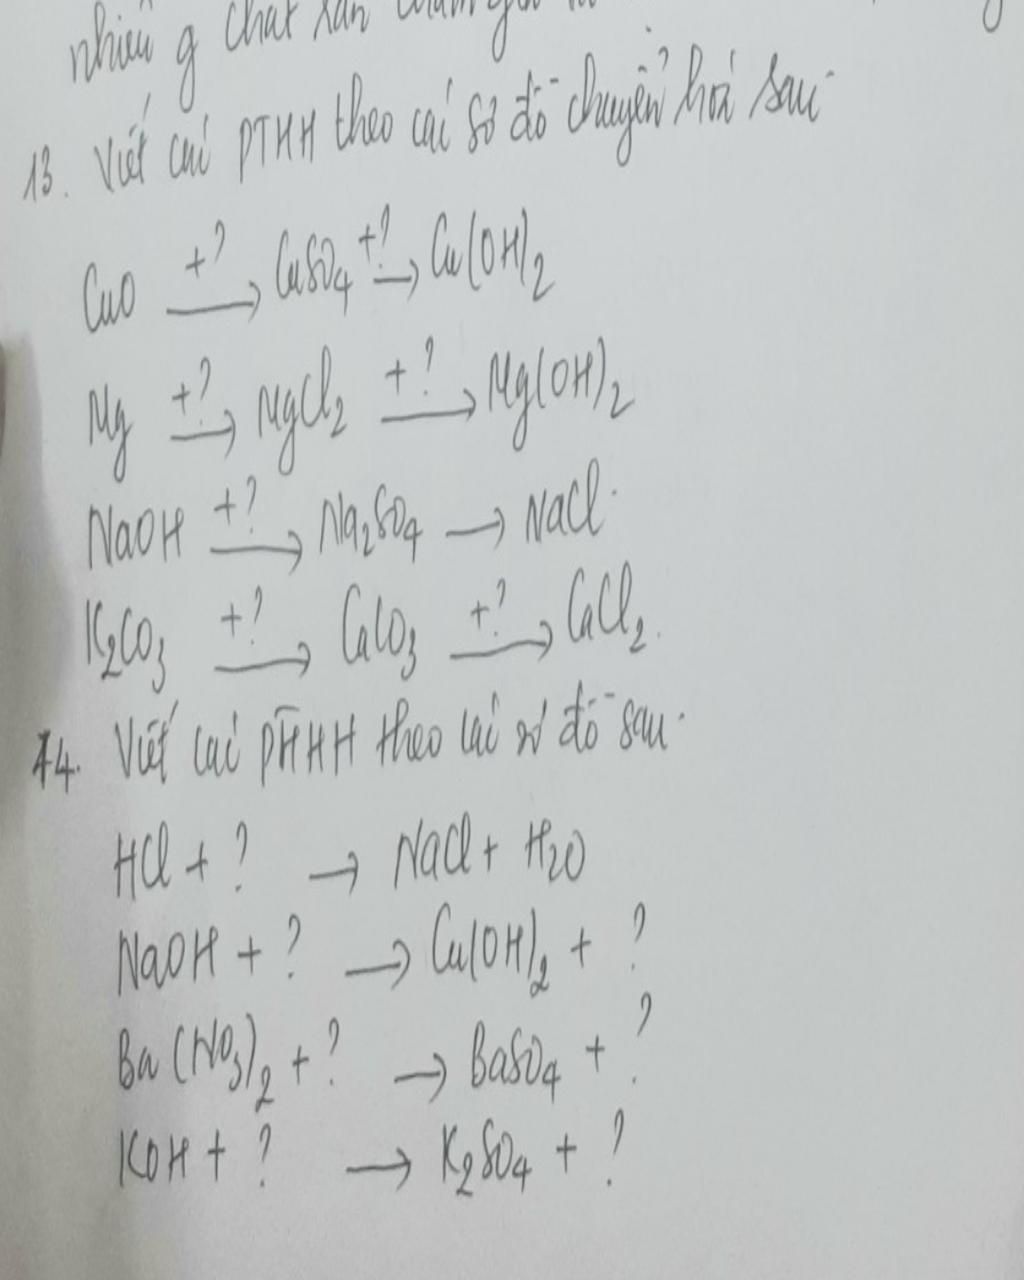 nhiêu g chất rắn
13. Viết các PTHH theo các sơ đồ chuyển hoá sau
CuO +?→ CuSO4 +?→ Cu(OH)2
Mg +?→ MgCl2 +?→ Mg(OH)2
NaOH +?→ Na2SO4 → NaCl.
K2CO3 +?→ CaCO3 +?→ CaCl2.
14. Viết các PTHH theo các sơ đồ sau.
HCl + ? → NaCl + H2O
NaOH + ? → Cu(OH)2 + ?
Ba(NO3)2 + ? → BaSO4 + ?
KOH + ? → K2SO4 + ?